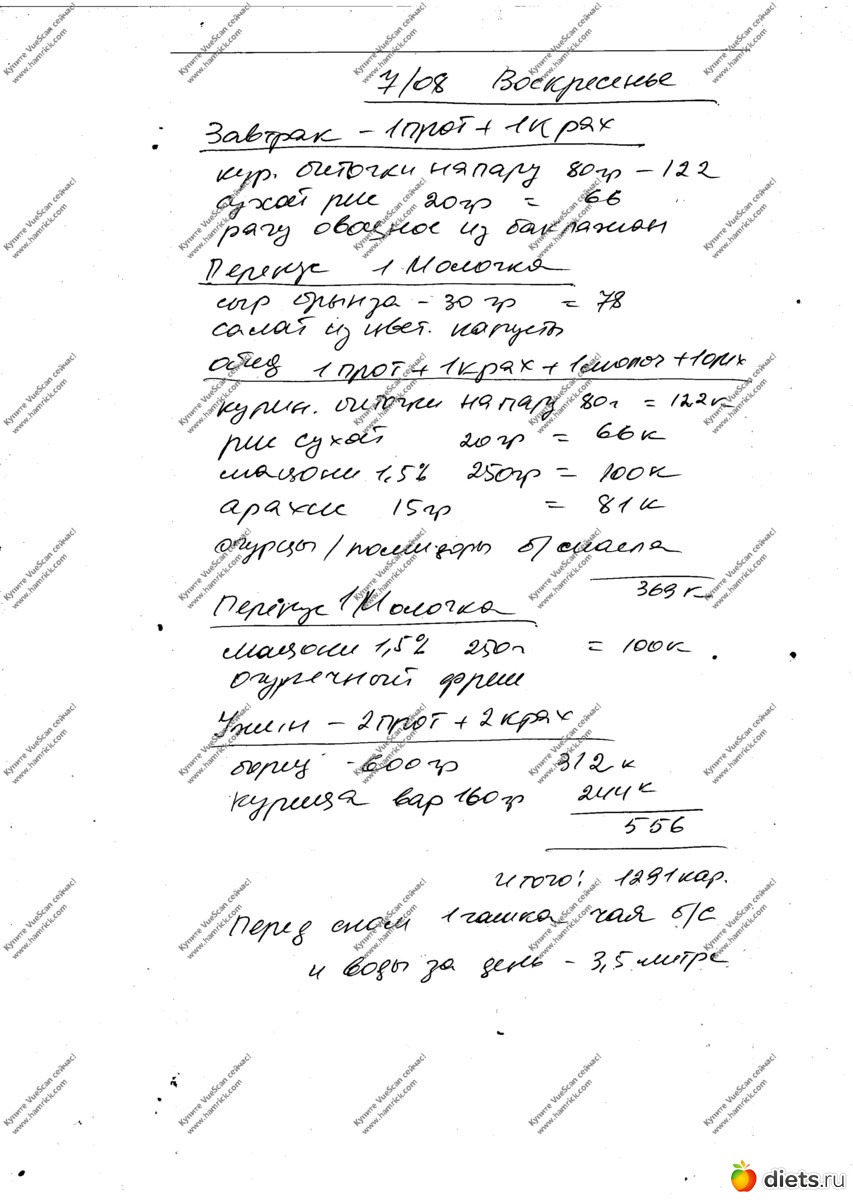 7/08 Воскресенье
Завтрак - 1прот + 1крах
кур. биточки на пару 80гр - 122
сухой рис 20гр = 66
рагу овощное из баклажан
Перекус 1 Молочка
сыр брынза - 30 гр = 78
салат из цвет. капусты
обед 1прот + 1крах + 1молоч + 1орех
курин. биточки на пару 80г = 122к
рис сухой 20гр = 66к
мацони 1,5% 250гр = 100к
арахис 15гр = 81к
огурцы / помидоры б/масла
369к
Перекус 1 Молочка
мацони 1,5% 250г = 100к.
Огуречный фреш
Ужин - 2прот + 2крах
борщ - 600гр 312к
курица вар 160гр 244к
556
итого! 1291кар.
Перед сном 1чашка чая б/с
и воды за день - 3,5 литра
Купите VueScan сейчас!
www.hamrick.com
diets.ru